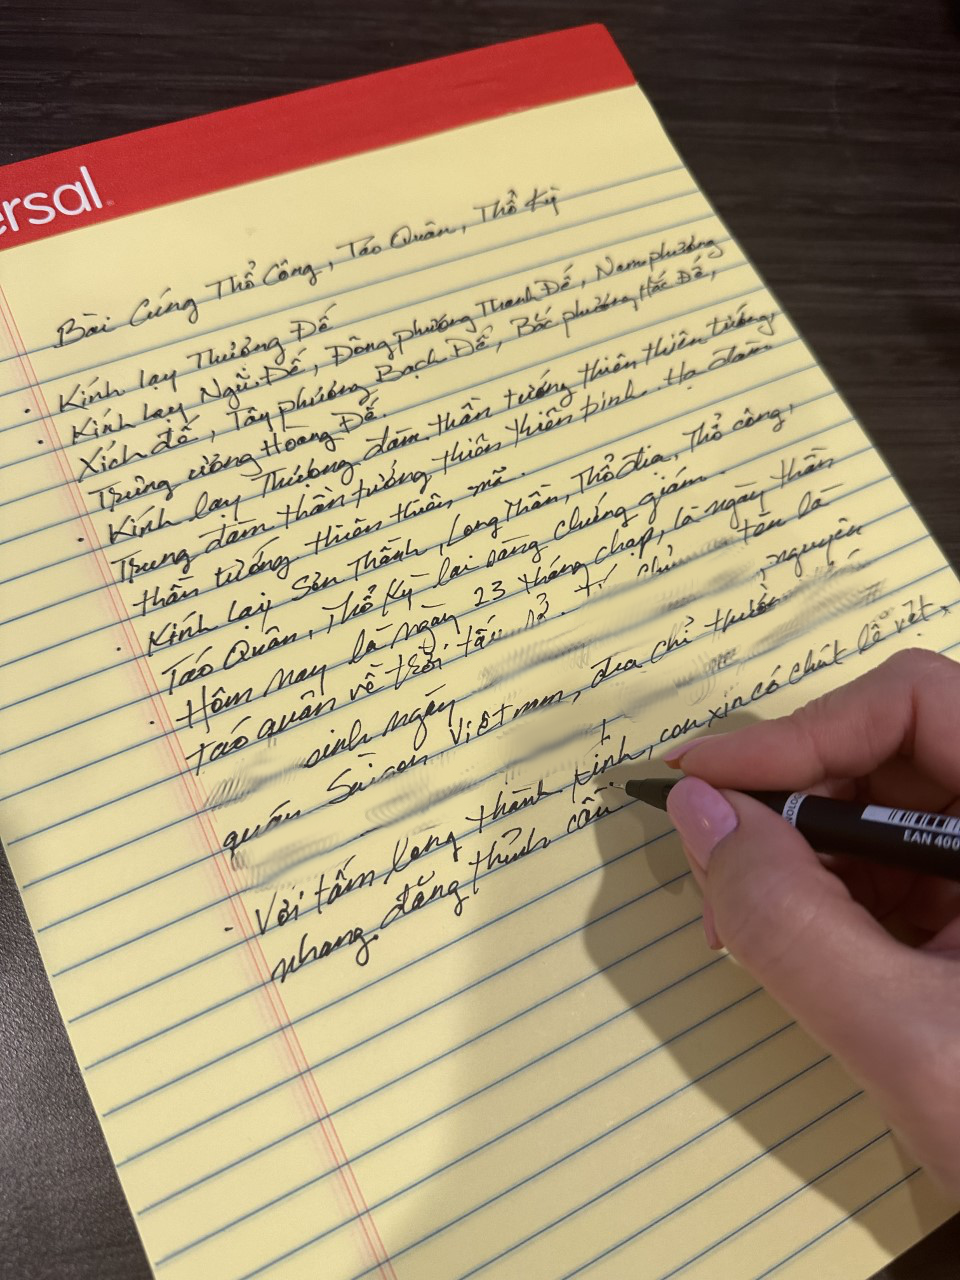 ersal
Bài Cúng Thổ Công, Táo Quân, Thổ Kỳ
. Kính lạy Thượng Đế
. Kính lạy Ngũ Đế, Đông phương Thanh Đế, Nam phương
Xích đế, Tây phương Bạch Đế, Bắc phương Hắc Đế,
Trung ương Hoàng Đế.
. Kính lạy Thượng đàm thần tướng thiên thiên tướng,
Trung đàm thần tướng thiên thiên binh. Hạ đàm
thần tướng thiên thiên mã.
. Kính lạy Sơn Thần, Long Thần, Thổ địa, Thổ công,
Táo Quân, Thổ Kỳ lai sàng chứng giám.
. Hôm nay là ngày 23 tháng chạp, là ngày thần
táo quân về trời tấu sở. tên là
sinh ngày nguyên
quán Saigon Vietnam, địa chỉ
. Với tấm lòng thành kính, con xin có chút lễ vật,
nhang đăng thỉnh cầu
EAN 400